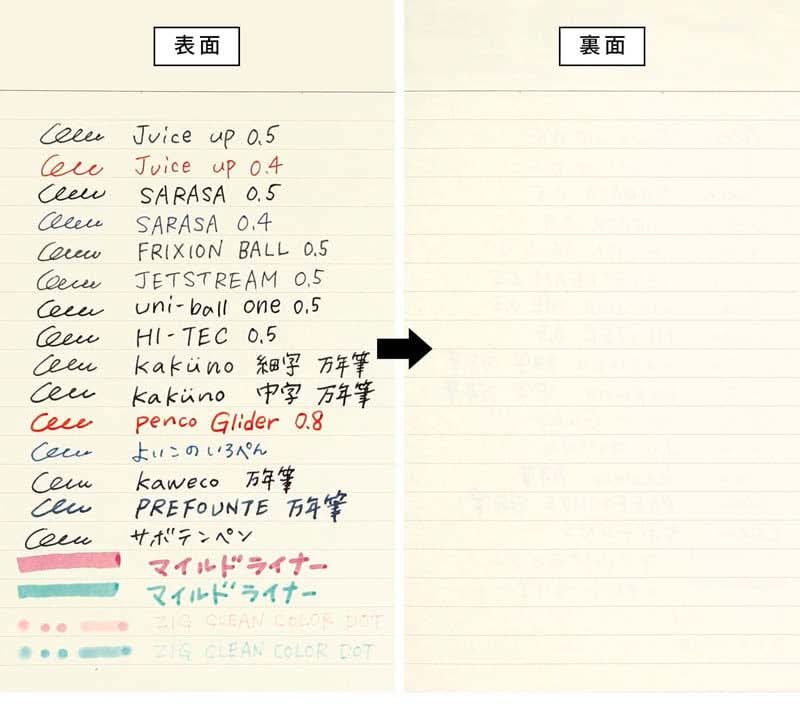 表面
Juice up 0.5
Juice up 0.4
SARASA 0.5
SARASA 0.4
FRIXION BALL 0.5
JETSTREAM 0.5
uni-ball one 0.5
HI-TEC 0.5
kaküno 細字 万年筆
kaküno 中字 万年筆
penco Glider 0.8
よいこのいろぺん
kaweco 万年筆
PREFOUNTE 万年筆
サボテンペン
マイルドライナー
マイルドライナー
ZIG CLEAN COLOR DOT
ZIG CLEAN COLOR DOT
裏面